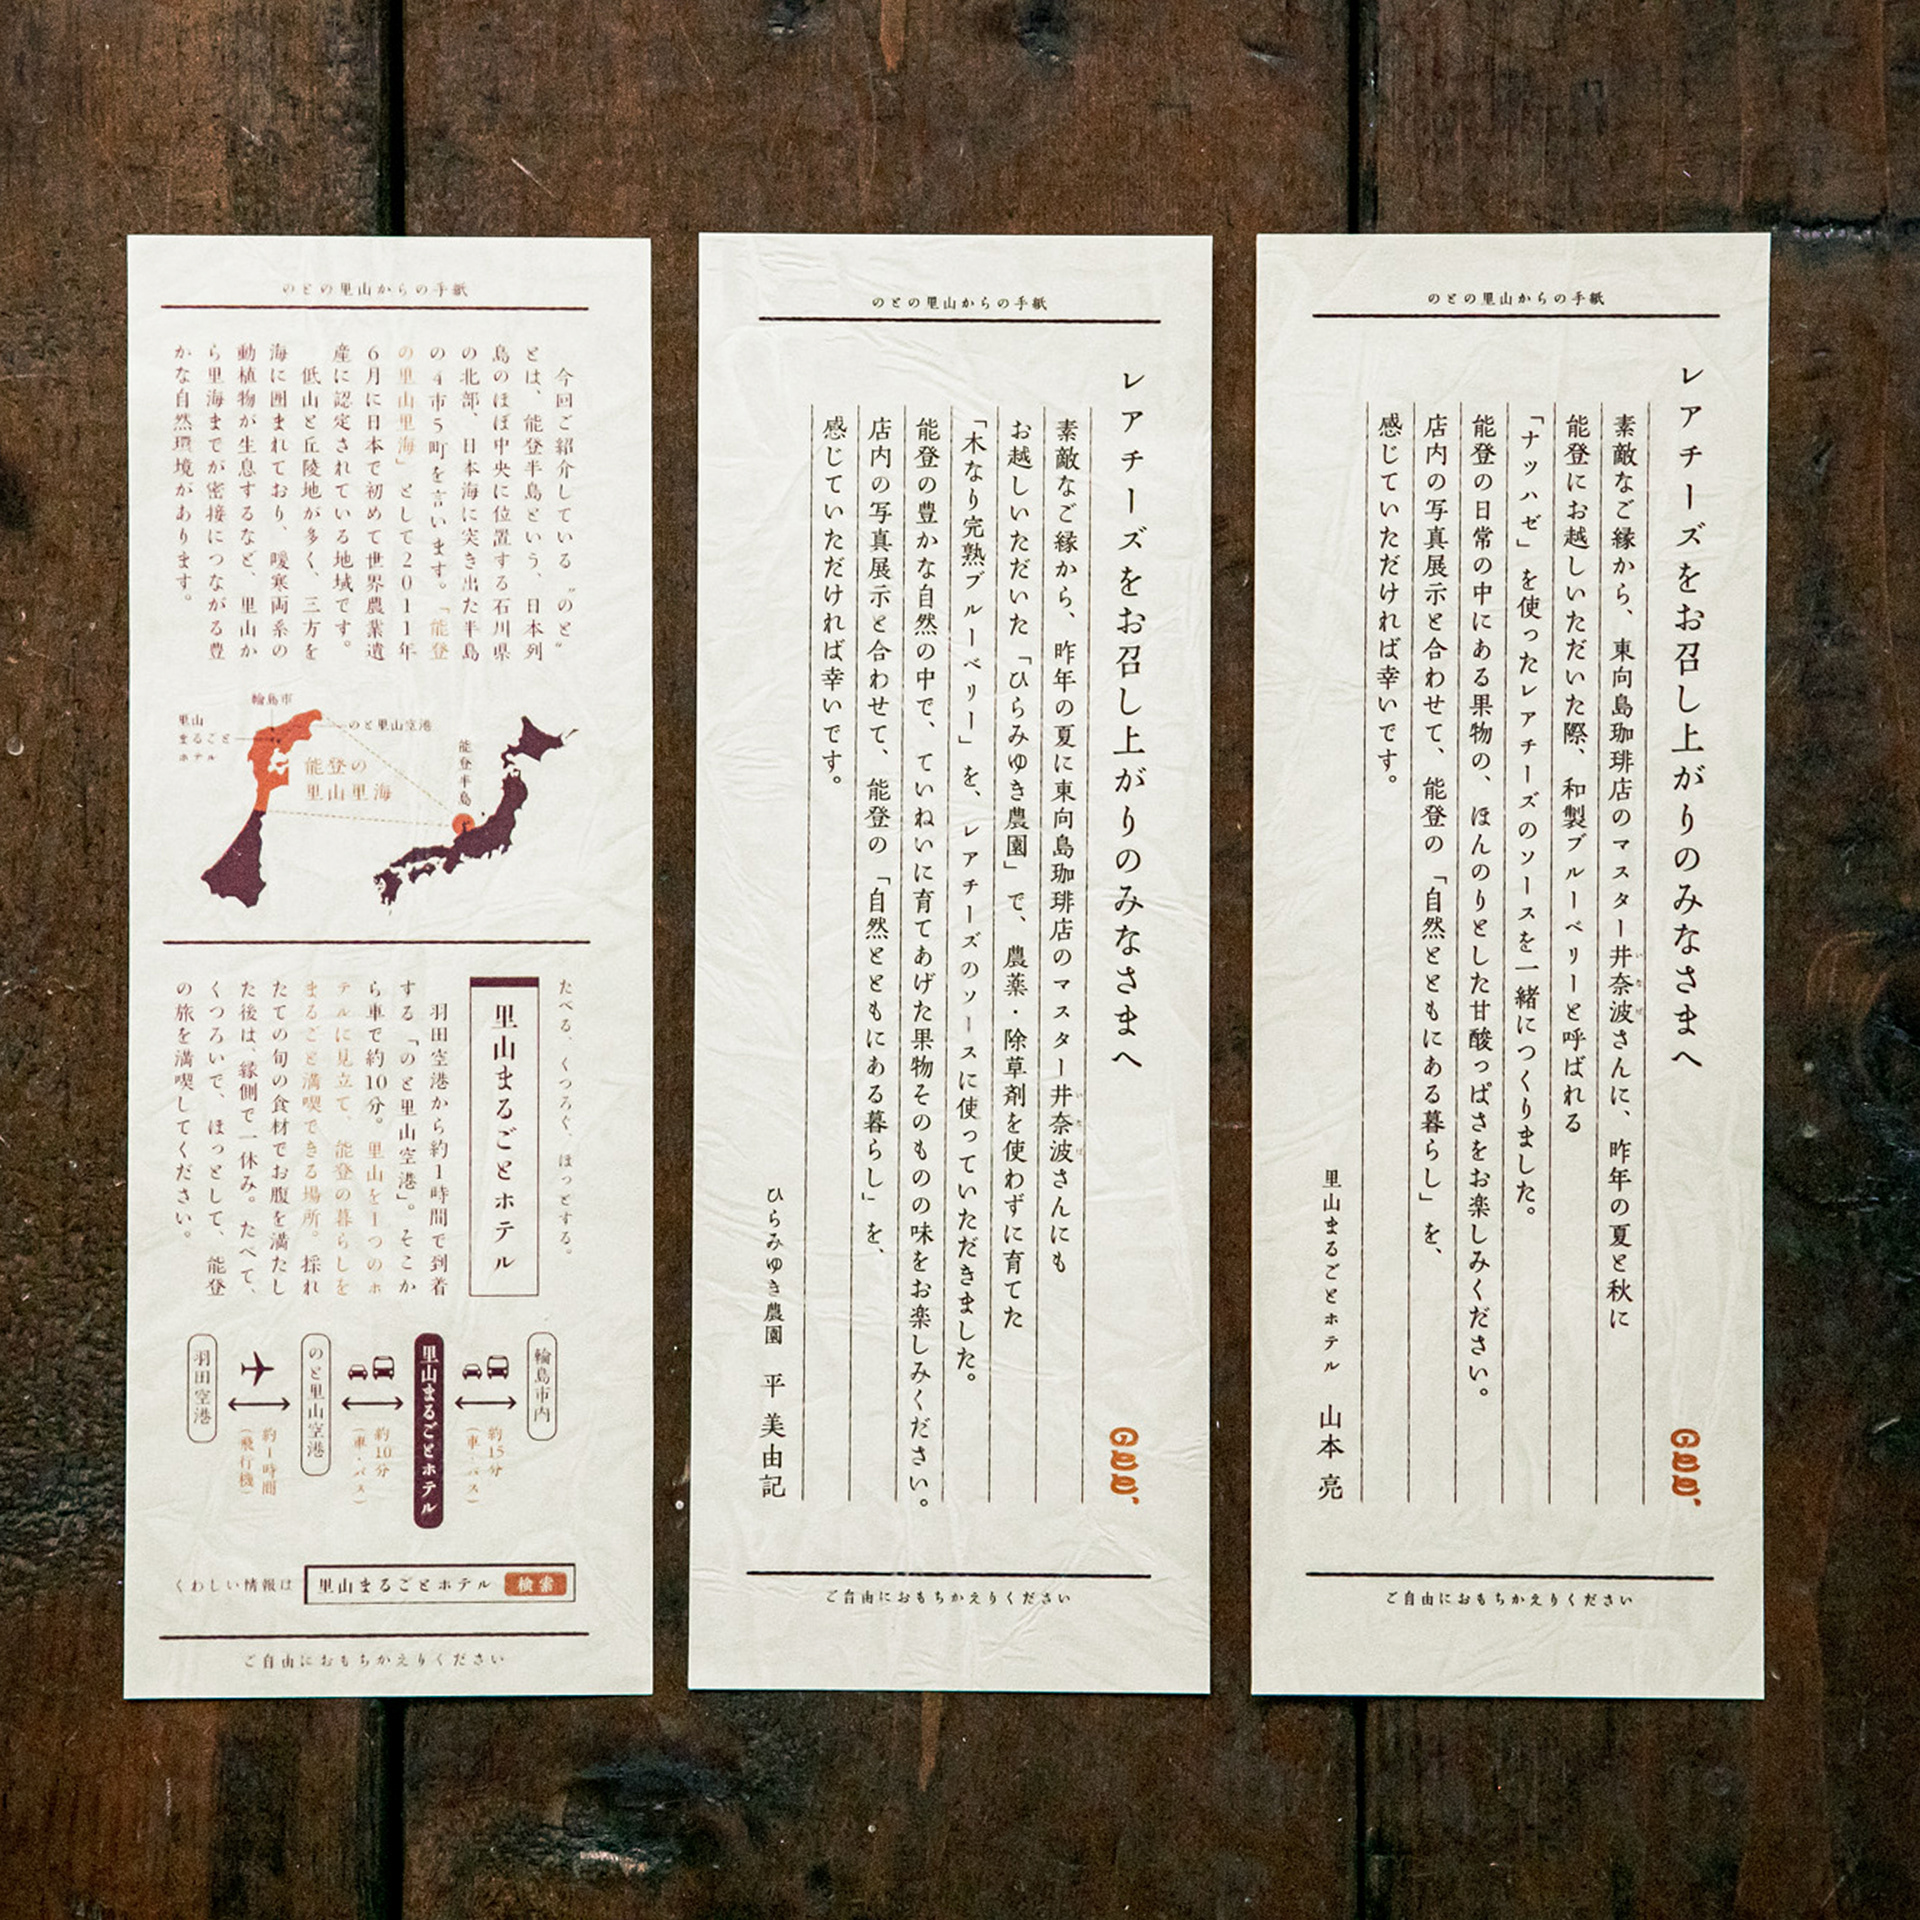 のとの里山からの手紙
今回ご紹介している〝のと〟
とは、能登半島という、日本列
島のほぼ中央に位置する石川県
の北部、日本海に突き出た半島
の4市5町を言います。「能登
の里山里海」として2011年
6月に日本で初めて世界農業遺
産に認定されている地域です。
低山と丘陵地が多く、三方を
海に囲まれており、暖寒両系の
動植物が生息するなど、里山か
ら里海までが密接につながる豊
かな自然環境があります。
輪島市
のと里山空港
里山
まるごと
ホテル
能登の
里山里海
能登半島
たべる、くつろぐ、ほっとする。
里山まるごとホテル
羽田空港から約1時間で到着
する「のと里山空港」。そこか
ら車で約10分。里山を1つのホ
テルに見立て、能登の暮らしを
まるごと満喫できる場所。採れ
たての旬の食材でお腹を満たし
た後は、縁側で一休み。たべて、
くつろいで、ほっとして、能登
の旅を満喫してください。
羽田空港
約1時間
(飛行機)
のと里山空港
約10分
(車・バス)
里山まるごとホテル
約15分
(車・バス)
輪島市内
くわしい情報は
里山まるごとホテル
検索
ご自由におもちかえりください
のとの里山からの手紙
レアチーズをお召し上がりのみなさまへ
素敵なご縁から、昨年の夏に東向島珈琲店のマスター井奈波さんにも
いなば
お越しいただいた「ひらみゆき農園」で、農薬・除草剤を使わずに育てた
「木なり完熟ブルーベリー」を、レアチーズのソースに使っていただきました。
能登の豊かな自然の中で、ていねいに育てあげた果物そのものの味をお楽しみください。
店内の写真展示と合わせて、能登の「自然とともにある暮らし」を、
感じていただければ幸いです。
ひらみゆき農園 平 美由記
ご自由におもちかえりください
のとの里山からの手紙
レアチーズをお召し上がりのみなさまへ
素敵なご縁から、東向島珈琲店のマスター井奈波さんに、昨年の夏と秋に
いなば
能登にお越しいただいた際、和製ブルーベリーと呼ばれる
「ナツハゼ」を使ったレアチーズのソースを一緒につくりました。
能登の日常の中にある果物の、ほんのりとした甘酸っぱさをお楽しみください。
店内の写真展示と合わせて、能登の「自然とともにある暮らし」を、
感じていただければ幸いです。
里山まるごとホテル 山本 亮
ご自由におもちかえりください